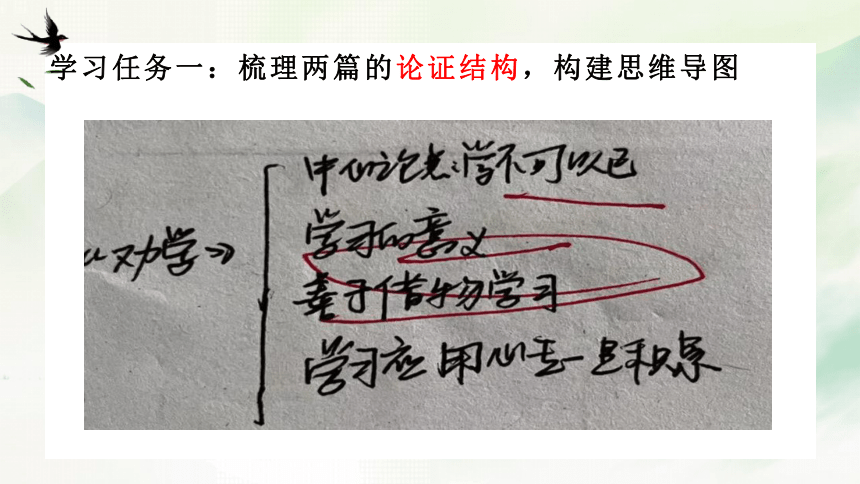 学习任务一：梳理两篇的论证结构，构建思维导图
中心论点：学不可以已
《劝学》
学习的意义
善于借物学习
学习应用心专一且积累